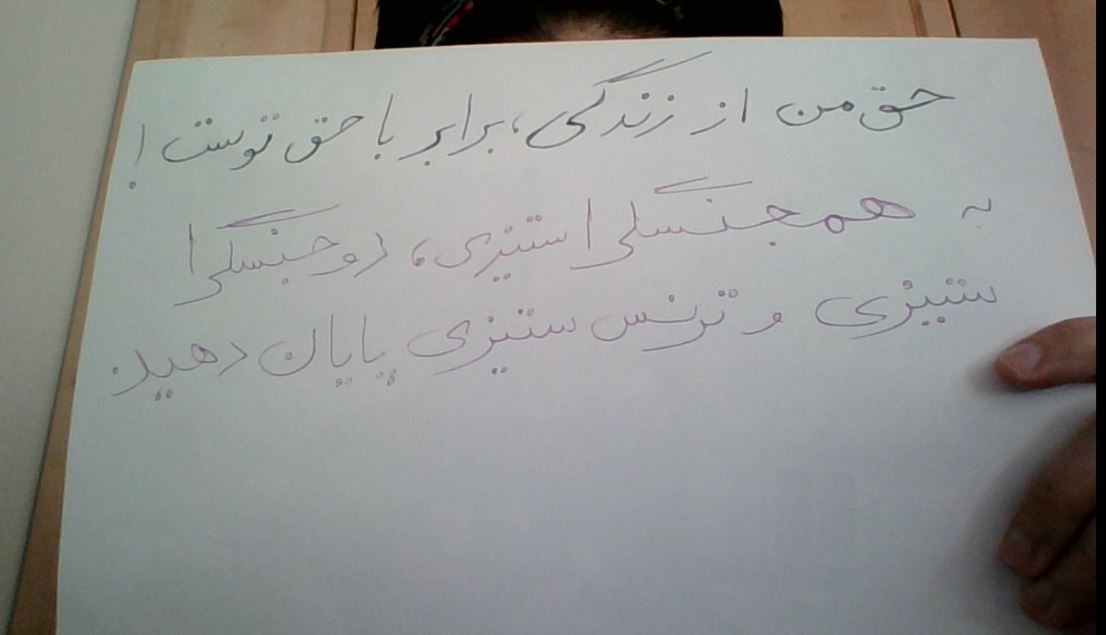 حق من از زندگی، برابر با حق توست!
به همجنسگرا ستیزی، دوجنسگرا
ستیزی و ترنس ستیزی پایان دهید.